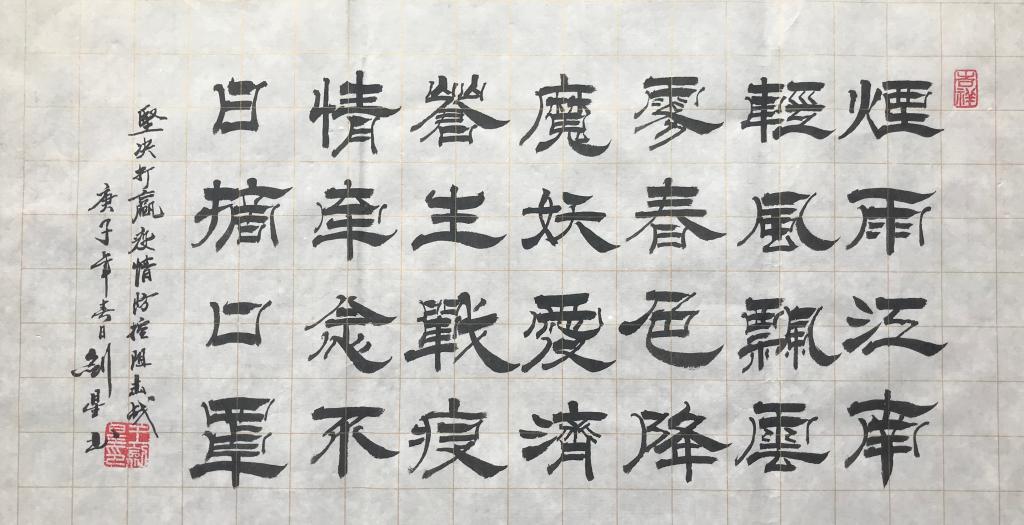 吉祥
煙雨江南
輕風飄雲
春色降
魔妖愛濟
蒼生戰疫
情牽念不
日摘口罩
堅决打贏疫情防控阻击战
庚子年春日劉星